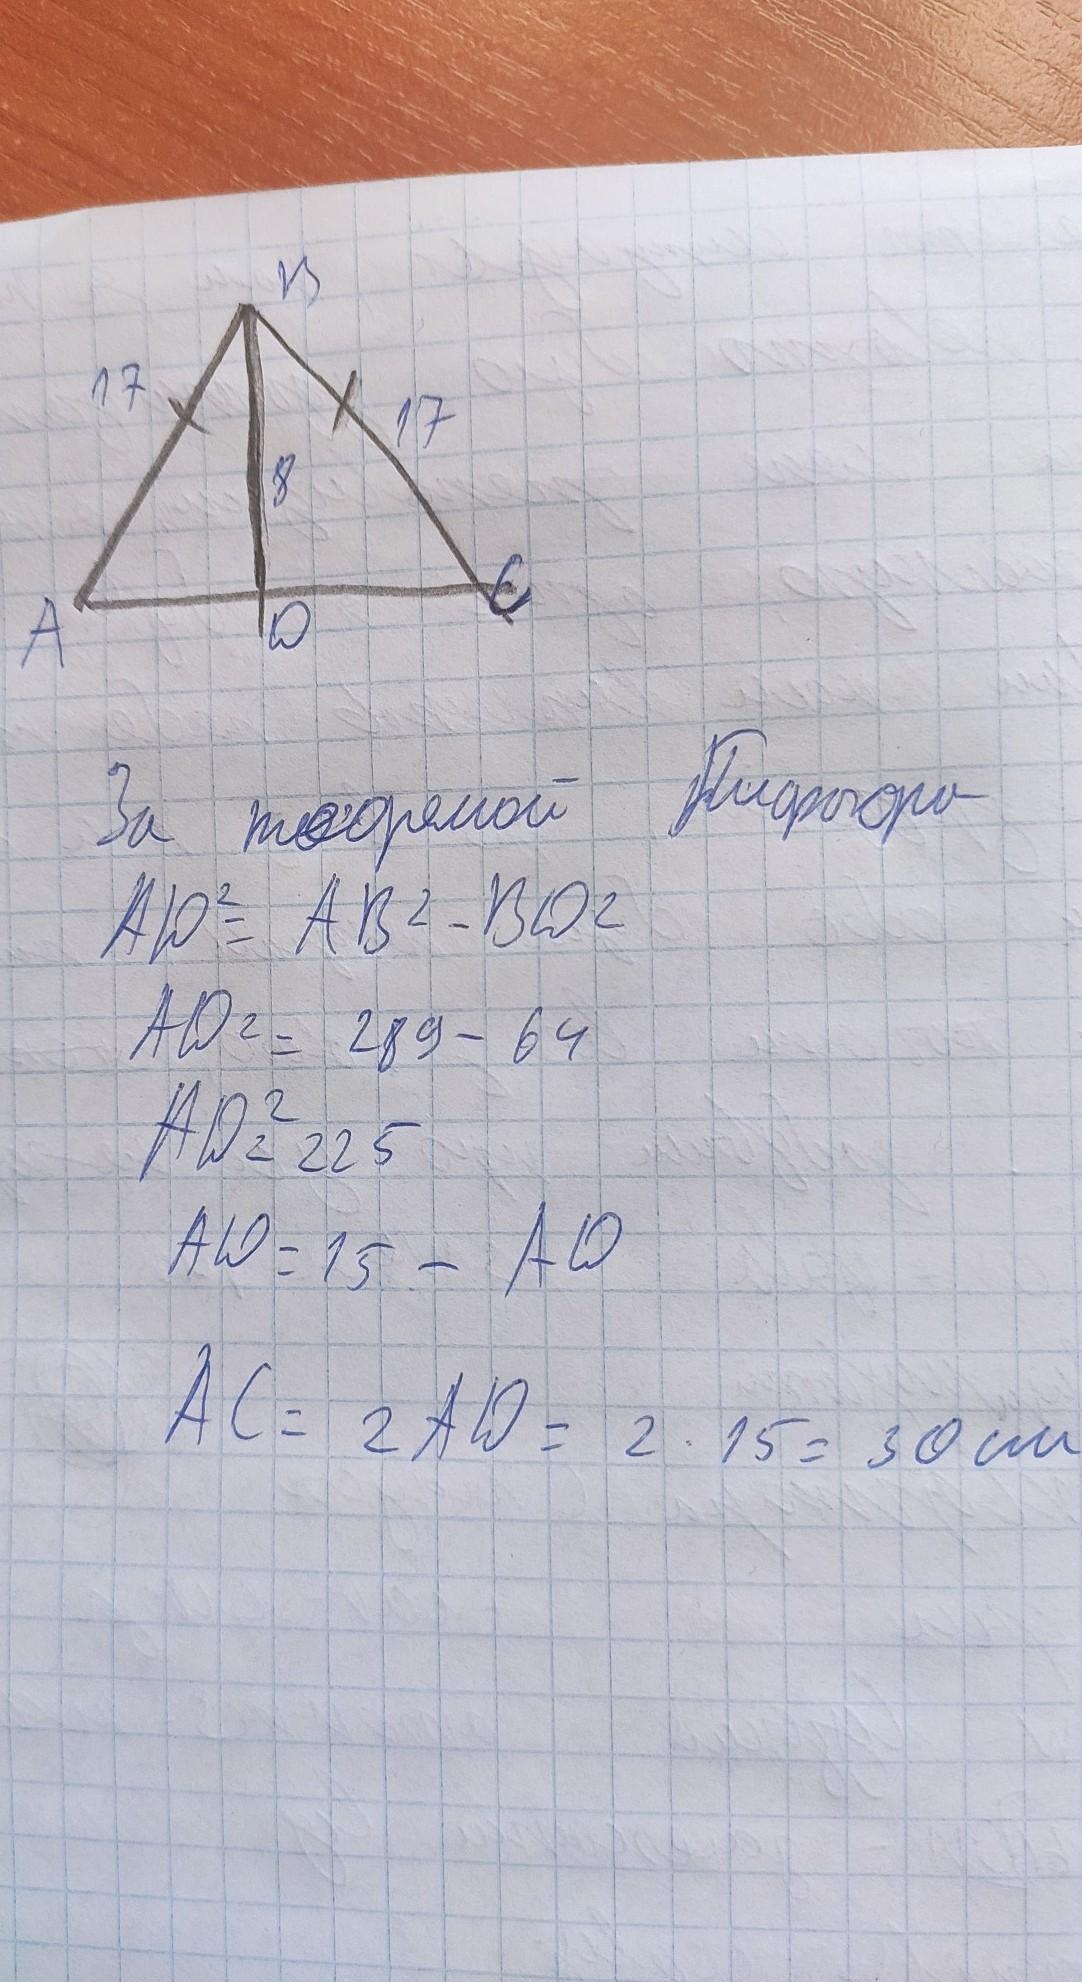 B
17
17
8
A
D
C
За теорямой Пифагора
AD² = AB² - BD²
AD² = 289 - 64
AD² = 225
AD = 15 - AD
AC = 2AD = 2 · 15 = 30 см